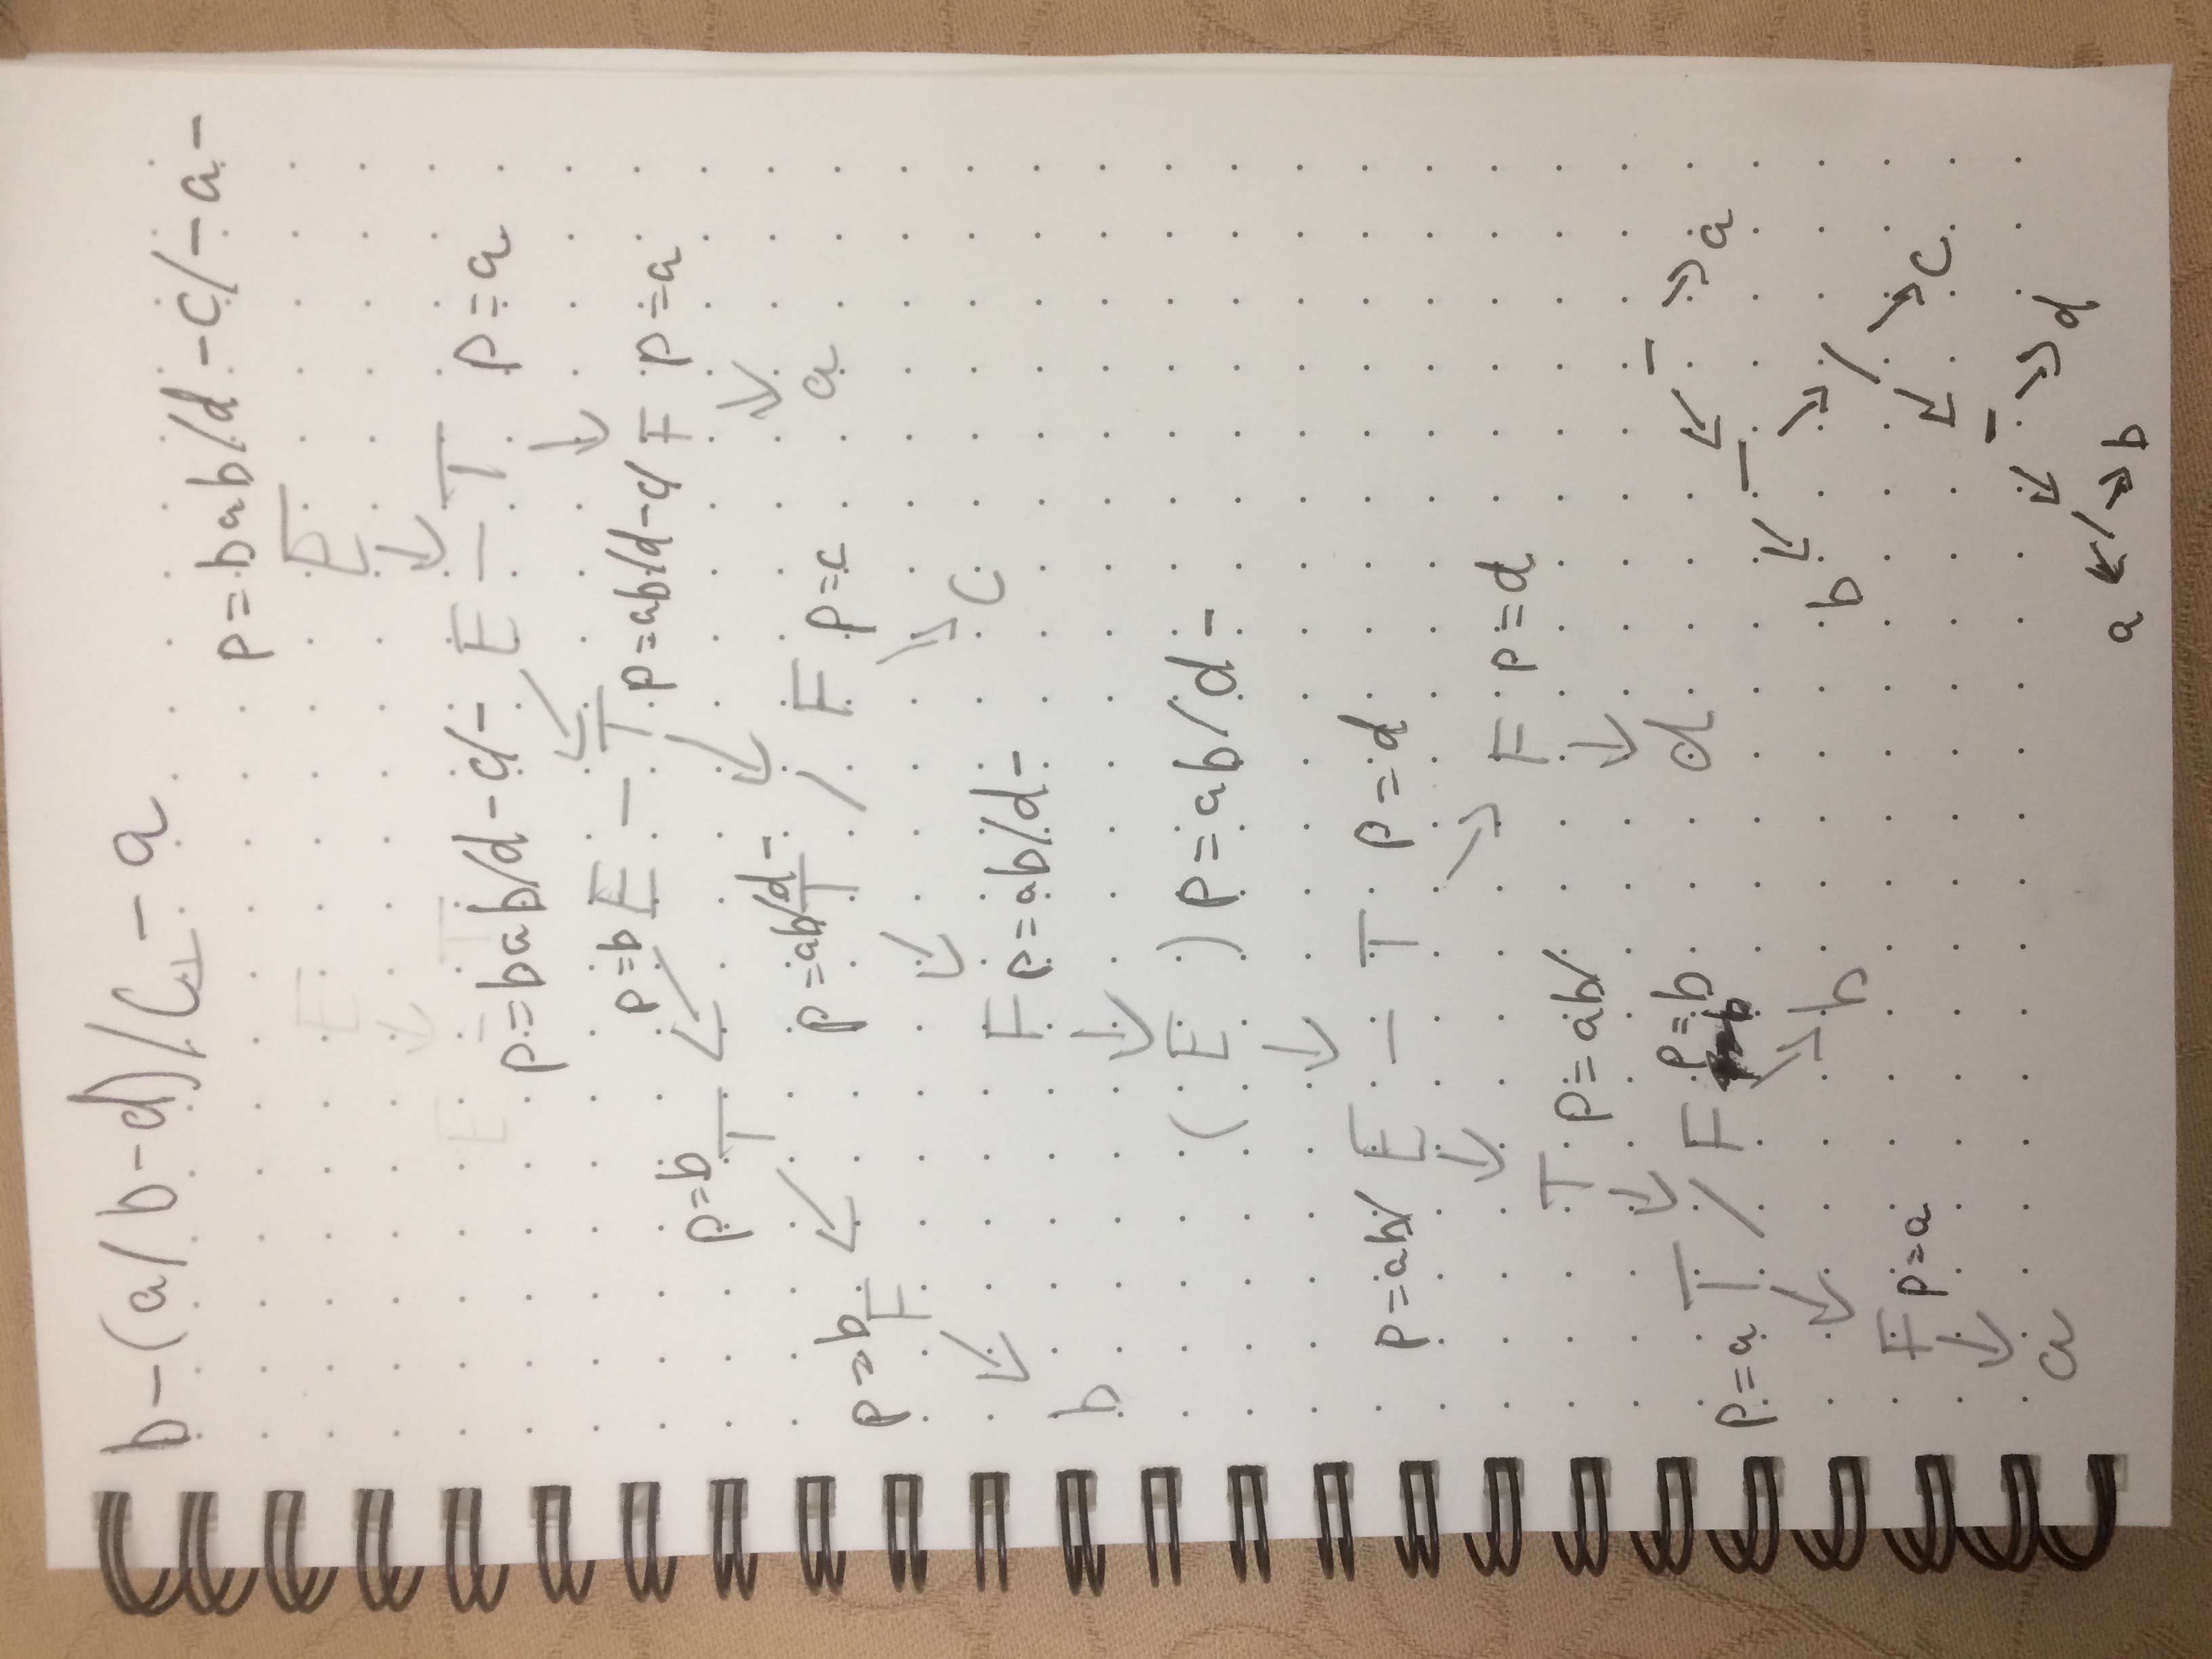 b-(a/b-d)/c-a
p=bab/d-c/-a-
E
p=bab/d-c/- E - T p=a
p=b E - T p=ab/d-c/ F p=a
p=b T
p=ab/d- T / F p=c a
p=b F
F p=ab/d- c
b
(E) p=ab/d-
p=ab/ E - T p=d
F p=d
T p=ab/
d
p=a T / F p=b
b
F p=a
a
- a
-
b /
c
- d
a / b